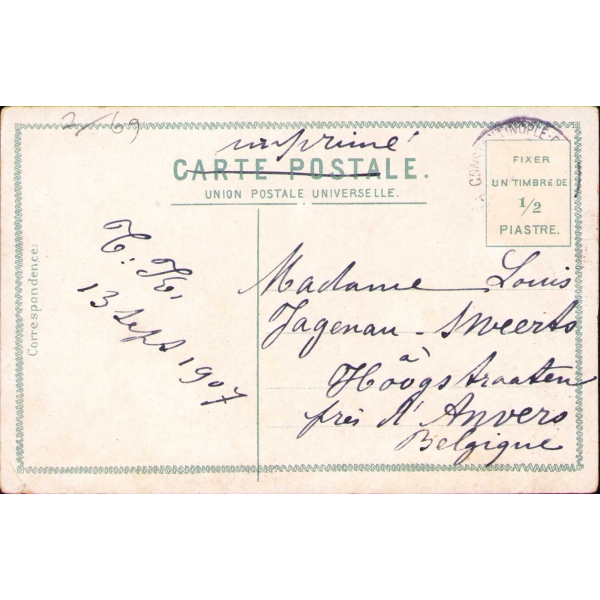 imprimé
CARTE POSTALE.
UNION POSTALE UNIVERSELLE.
FIXER
UN TIMBRE DE
1/2
PIASTRE.
Correspondence:
13 Sept 1907
Madame Louis
Jagenau-Sweerts
à
Hoogstraaten
près d'Anvers
Belgique